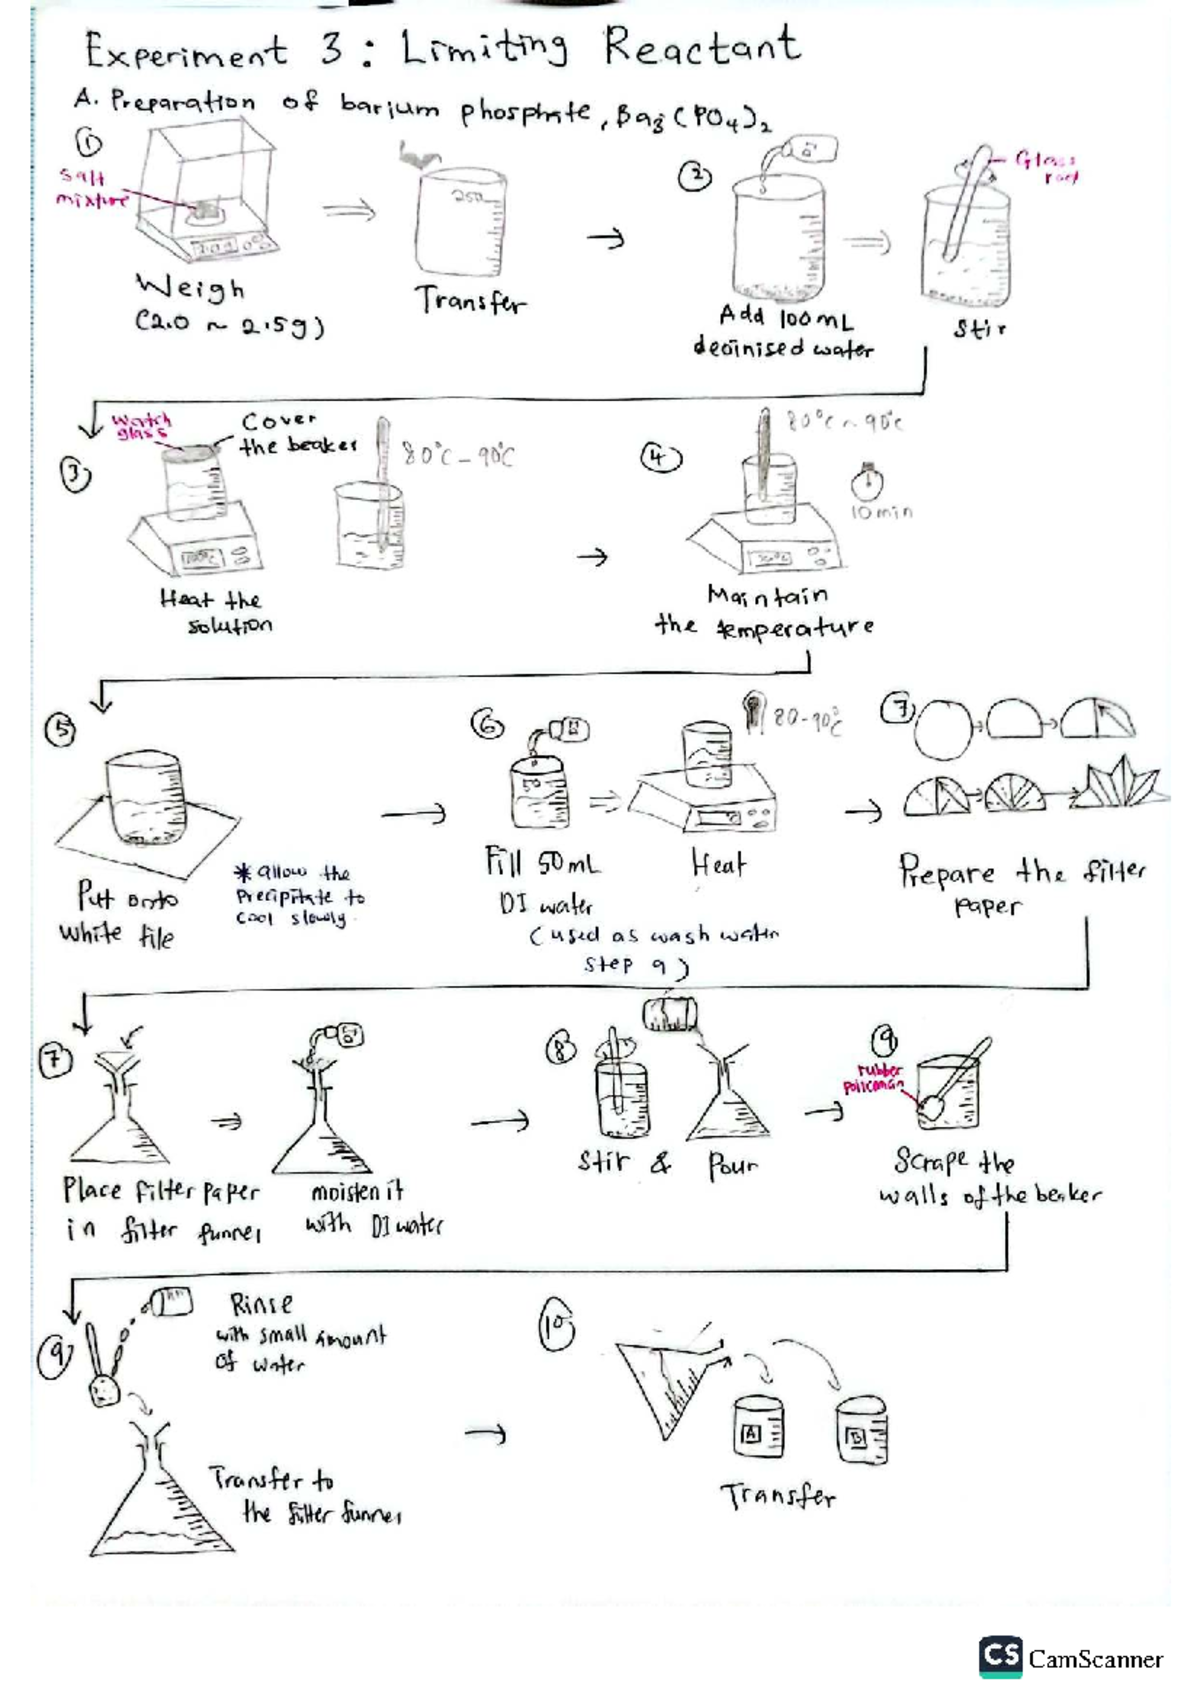 Experiment 3 : Limiting Reactant
A. Preparation of barium phosphate, Ba3(PO4)2
1
salt
mixture
Weigh
(2.0 ~ 2.5g)
250
Transfer
2
Add 100mL
deoinised water
Glass
rod
Stir
3
Watch
glass
Cover
the beaker
80°C - 90°C
Heat the
solution
4
80°C ~ 90°C
10 min
Maintain
the temperature
5
Put onto
white tile
* allow the
Precipitate to
cool slowly.
6
Fill 50mL
DI water
(used as wash water
step 9)
80-90°C
Heat
7
Prepare the filter
paper
7
Place filter paper
in filter funnel
moisten it
with DI water
8
Stir & Pour
9
rubber
policeman
Scrape the
walls of the beaker
9
Rinse
with small amount
of water
Transfer to
the filter funnel
10
A
B
Transfer
CS CamScanner